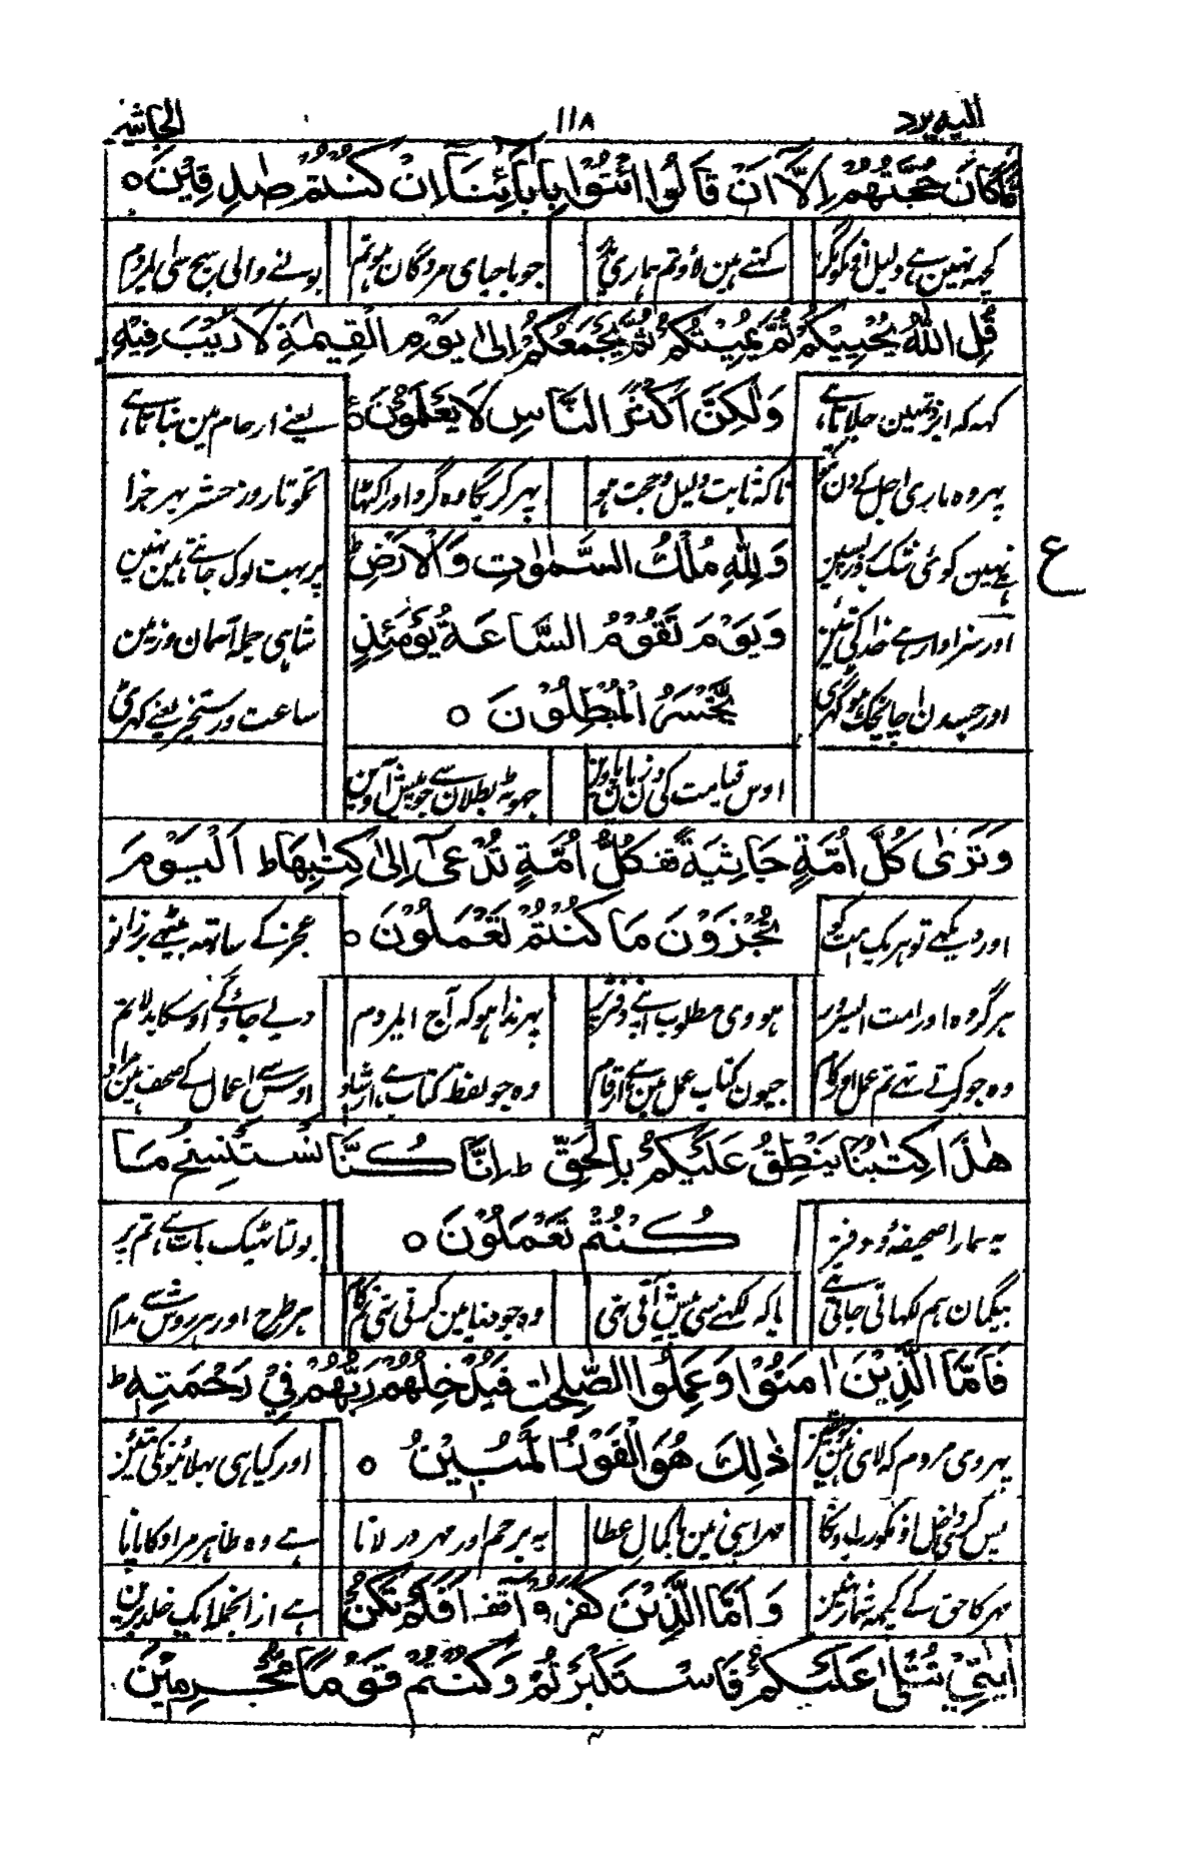 الیہ یرد ۱۱۸ الجاثیہ
مَّا كَانَ حُجَّتَهُمْ اِلَّآ اَنْ قَالُوا ائْتُوْا بِاٰبَآئِنَآ اِنْ كُنْتُمْ صٰدِقِيْنَ ○
کچھ نہین ہے دلیل اونکو مگر کہتے ہین لاؤ تم ہماری جو باجبای مردگان ہو تم بولنے والی سچ سی امردم
قُلِ اللّٰهُ يُحْيِيْكُمْ ثُمَّ يُمِيْتُكُمْ ثُمَّ يَجْمَعُكُمْ اِلٰى يَوْمِ الْقِيٰمَةِ لَا رَيْبَ فِيْهِ
کہہ کہ ایزد تمہین جلاتا ہے وَلٰكِنَّ اَكْثَرَ النَّاسِ لَا يَعْلَمُوْنَ ○ یعنے ارحام مین بناتا ہے
پہر وہ ماری اجل کے دن تاکہ ثابت دلیل و حجت ہو پہر کریگا وہ گرد اور اکہٹا تمکو تا روز حشر بہر جزا
ع
نہین کوئی شک وَلِلّٰهِ مُلْكُ السَّمٰوٰتِ وَالْاَرْضِ ؕ پر بہت لوک جانتے ہین نہین
اور سزاوار ہے خدا کی تئین وَيَوْمَ تَقُوْمُ السَّاعَةُ يَوْمَئِذٍ شاہی جملہ آسمان و زمین
اور جسدن اچانچک ہو کہڑی يَّخْسَرُ الْمُبْطِلُوْنَ ○ ساعت و رستخیز یعنے کہڑی
اوس قیامت کی دن زیان جہوٹہ بطلان سے جو پیش آوین
وَتَرٰى كُلَّ اُمَّةٍ جَاثِيَةً ۫ كُلُّ اُمَّةٍ تُدْعٰٓى اِلٰى كِتٰبِهَا ؕ اَلْيَوْمَ
اور دیکہے تو ہر یک امت کو تُجْزَوْنَ مَا كُنْتُمْ تَعْمَلُوْنَ ○ عجز کے ساتہہ بیٹہے بر زانو
ہر گروہ اور امت ہووی مطلوب اپنے دفتر پر پہر ندا ہو کہ آج امردم دیے جاؤگے اوسکا بدلا تم
وہ جو کرتے تہے تم عمل اور کام جیون کتاب عمل مین ہے ارقام وہ جو لفظ کتاب ہے ارشاد اوس سے اعمال کے صحف ہین مراد
هٰذَا كِتٰبُنَا يَنْطِقُ عَلَيْكُمْ بِالْحَقِّ ؕ اِنَّا كُنَّا نَسْتَنْسِخُ مَا
یہ ہمارا صحیفہ و دفتر كُنْتُمْ تَعْمَلُوْنَ ○ بولتا ٹہیک بات ہے تم پر
بیگمان ہم لکہاتی جاتی تہے یا کہ لکہنے سی پیش آتی تہی وہ جو دنیا مین کرتی تہی تم کام ہر طرح اور ہر روش سے مدام
فَاَمَّا الَّذِيْنَ اٰمَنُوْا وَعَمِلُوا الصّٰلِحٰتِ فَيُدْخِلُهُمْ رَبُّهُمْ فِيْ رَحْمَتِهٖ ؕ
پہر وی مردم کہ لای ہین ذٰلِكَ هُوَ الْفَوْزُ الْمُبِيْنُ ○ اور کیا ہی بہلائیونکی تئین
پس کری داخل اونکو رب اونکا مہر اپنی مین با کمال عطا یہ برحم اور مہر در لانا ہے وہ ظاہر مراد کا پانا
مہر کا حق کے کچہہ شمار نہین وَاَمَّا الَّذِيْنَ كَفَرُوْا ۫ اَفَلَمْ تَكُنْ ہے از انجملا ایک خلد برین
اٰيٰتِيْ تُتْلٰى عَلَيْكُمْ فَاسْتَكْبَرْتُمْ وَكُنْتُمْ قَوْمًا مُّجْرِمِيْنَ